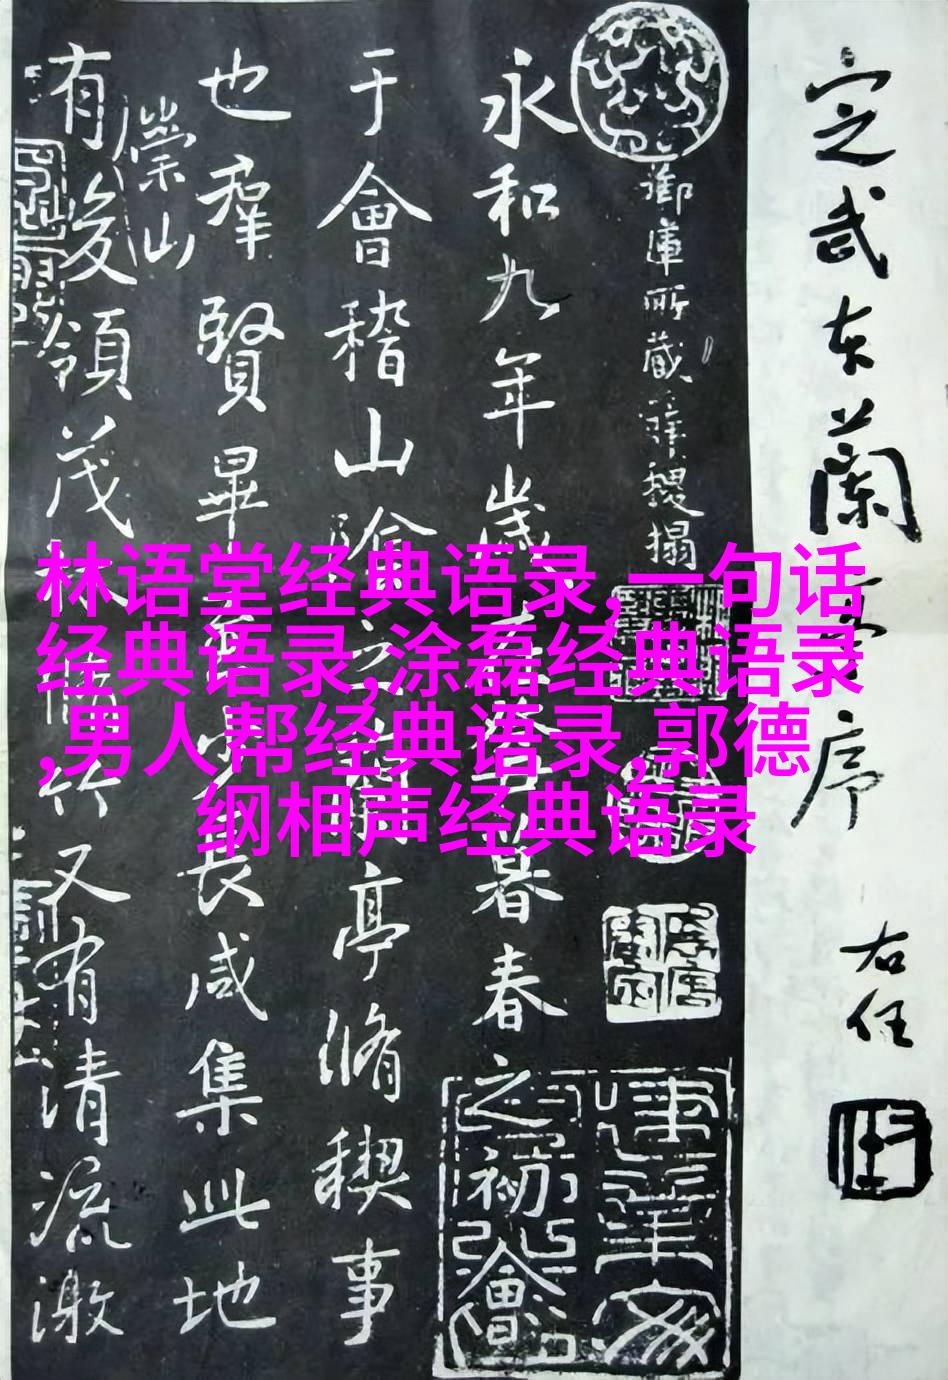 定武本蘭亭序
右任
御庫所藏稧搨
永和九年歲在癸丑暮春之初會
于會稽山陰之蘭亭脩稧事
也羣賢畢至少長咸集此地
有崇山
峻領茂林脩竹又有清流激
林语堂经典语录,一句话
经典语录,涂磊经典语录
,男人帮经典语录,郭德
纲相声经典语录